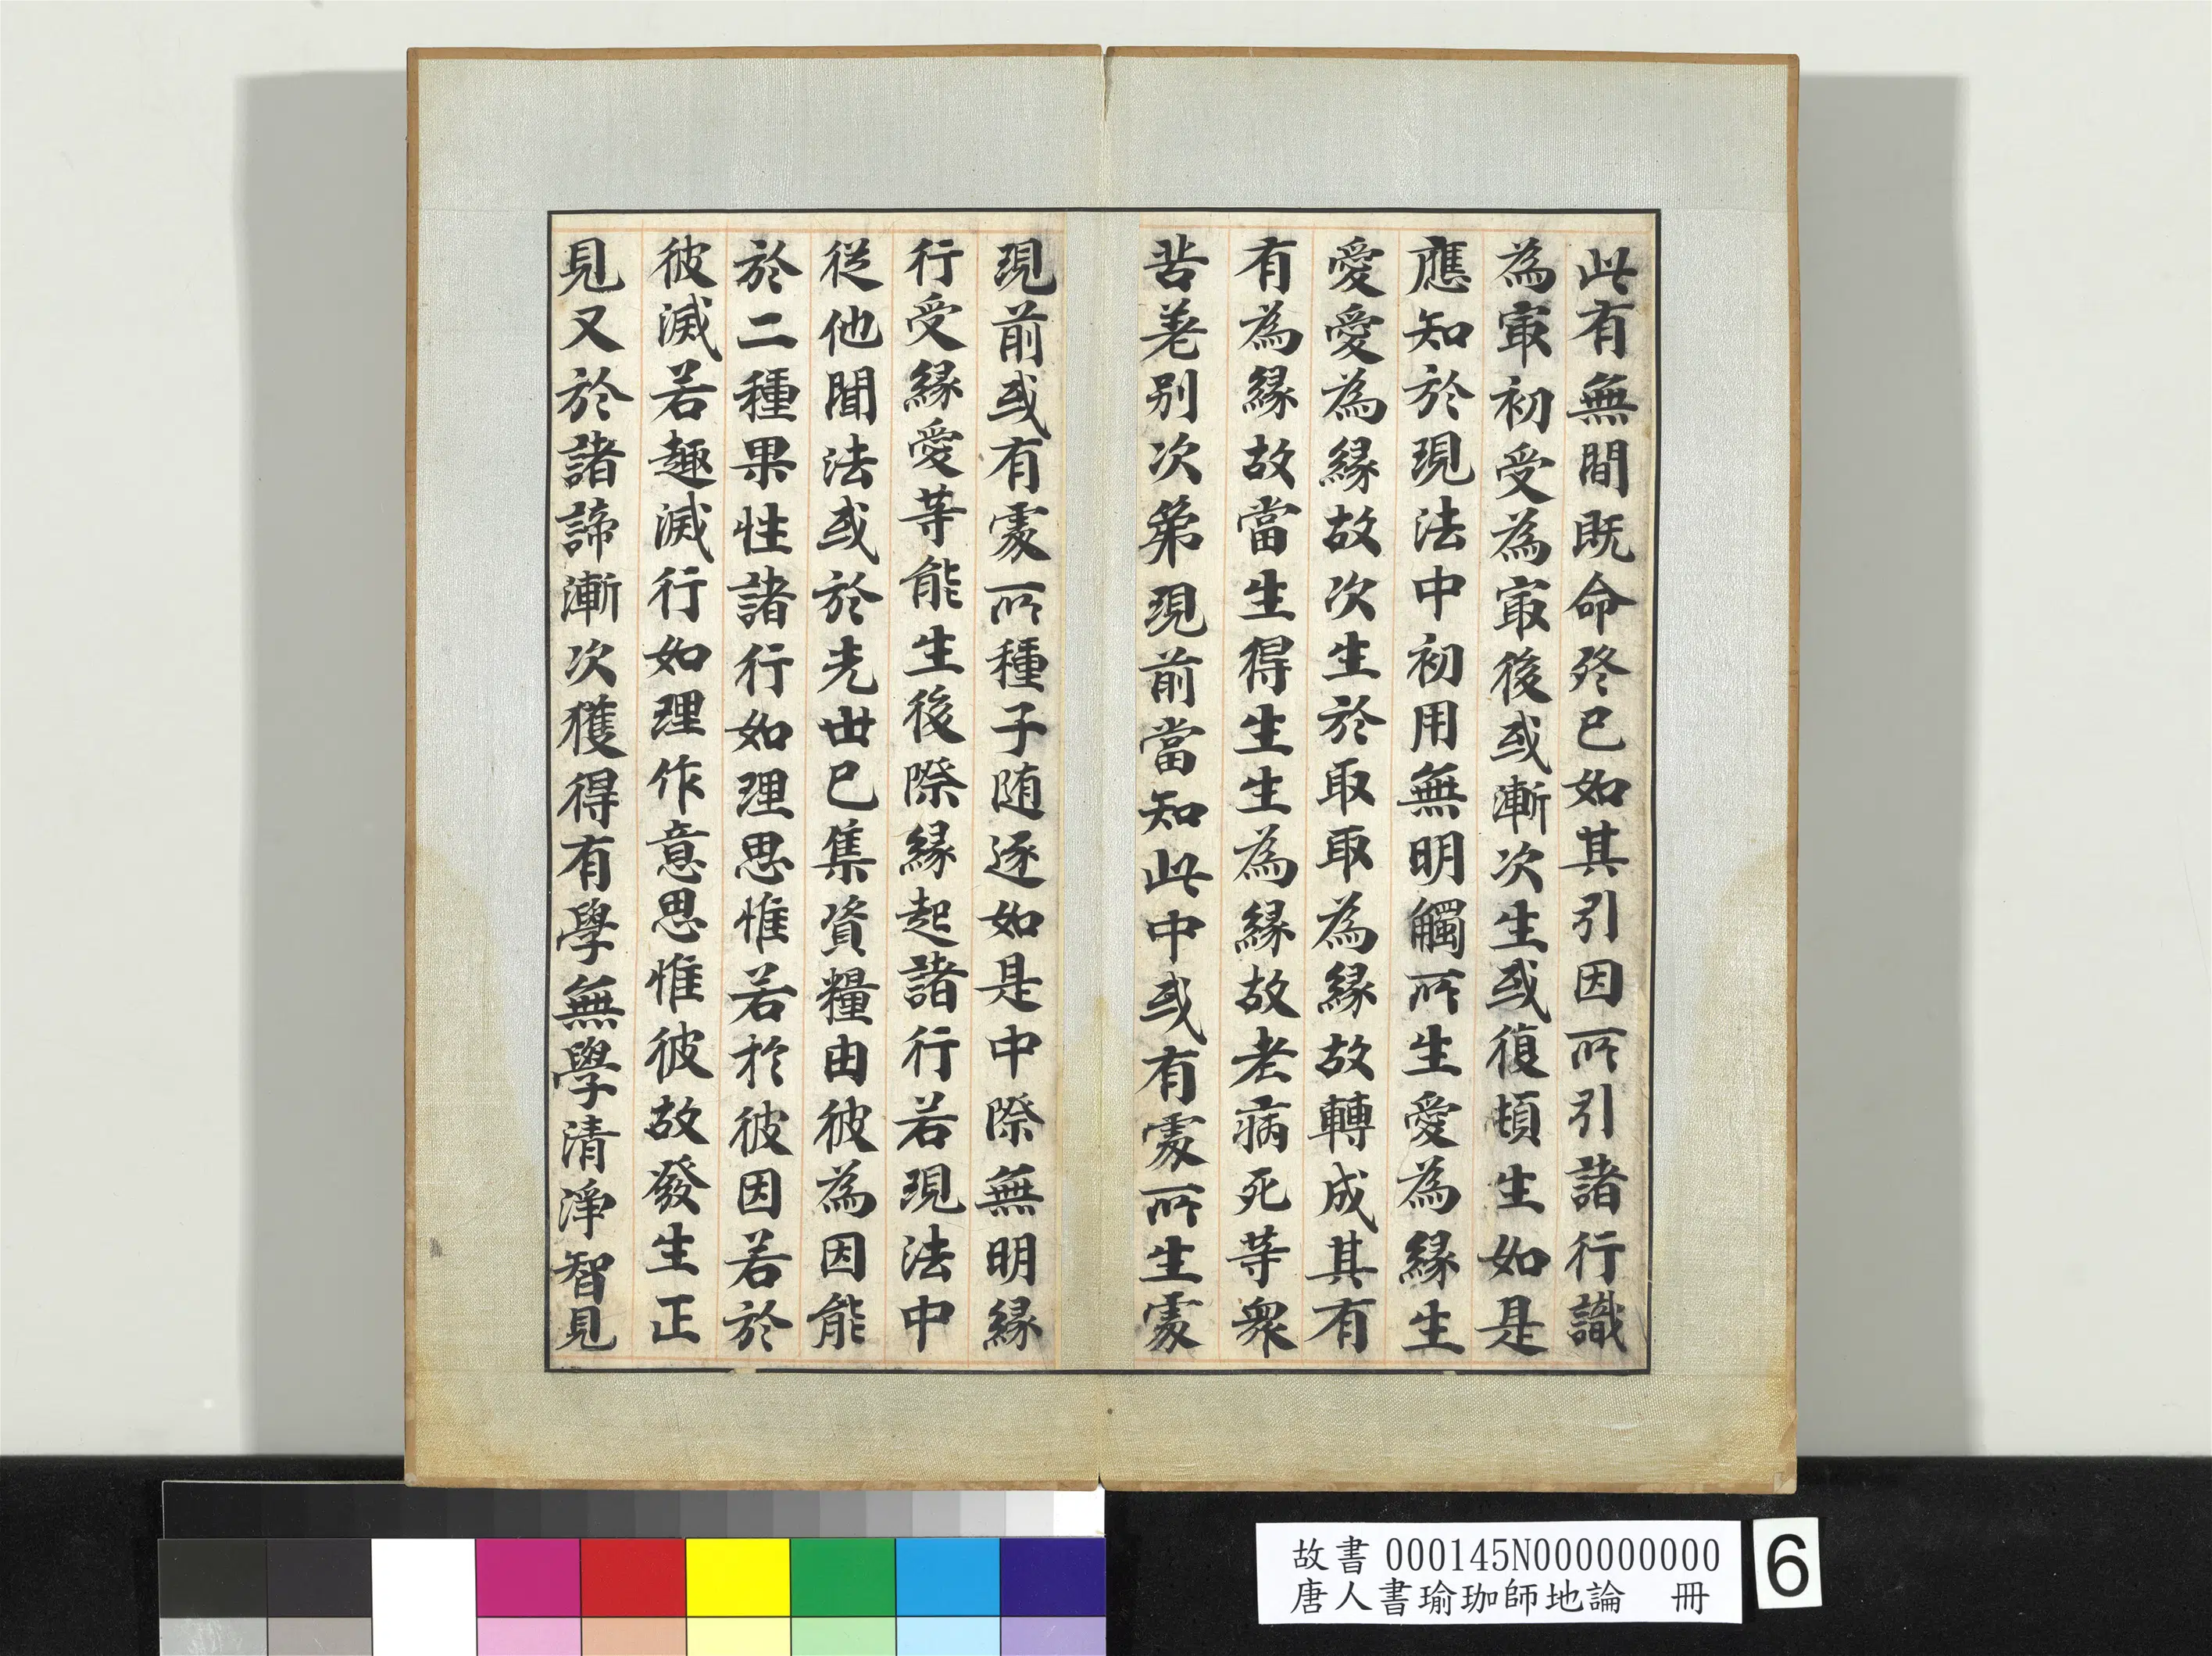 此有無間既命終已如其引因所引諸行識
為冣初受為冣後或漸次生或復頓生如是
應知於現法中初用無明觸所生愛為緣生
愛愛為緣故次生於取取為緣故轉成其有
有為緣故當生得生生為緣故老病死等衆
苦差别次第現前當知此中或有處所生處
現前或有處所種子随逐如是中際無明緣
行受緣愛等能生後際緣起諸行若現法中
從他聞法或於先世已集資糧由彼為因能
於二種果性諸行如理思惟若於彼因若於
彼滅若趣滅行如理作意思惟彼故發生正
見又於諸諦漸次獲得有學無學清淨智見
故書 000145N000000000
唐人書瑜珈師地論 冊
6